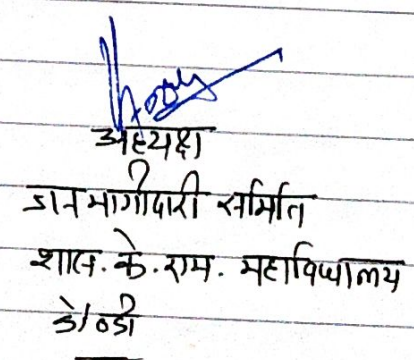 अध्यक्ष
जनभागीदारी समिति
शास. के. राम. महाविद्यालय